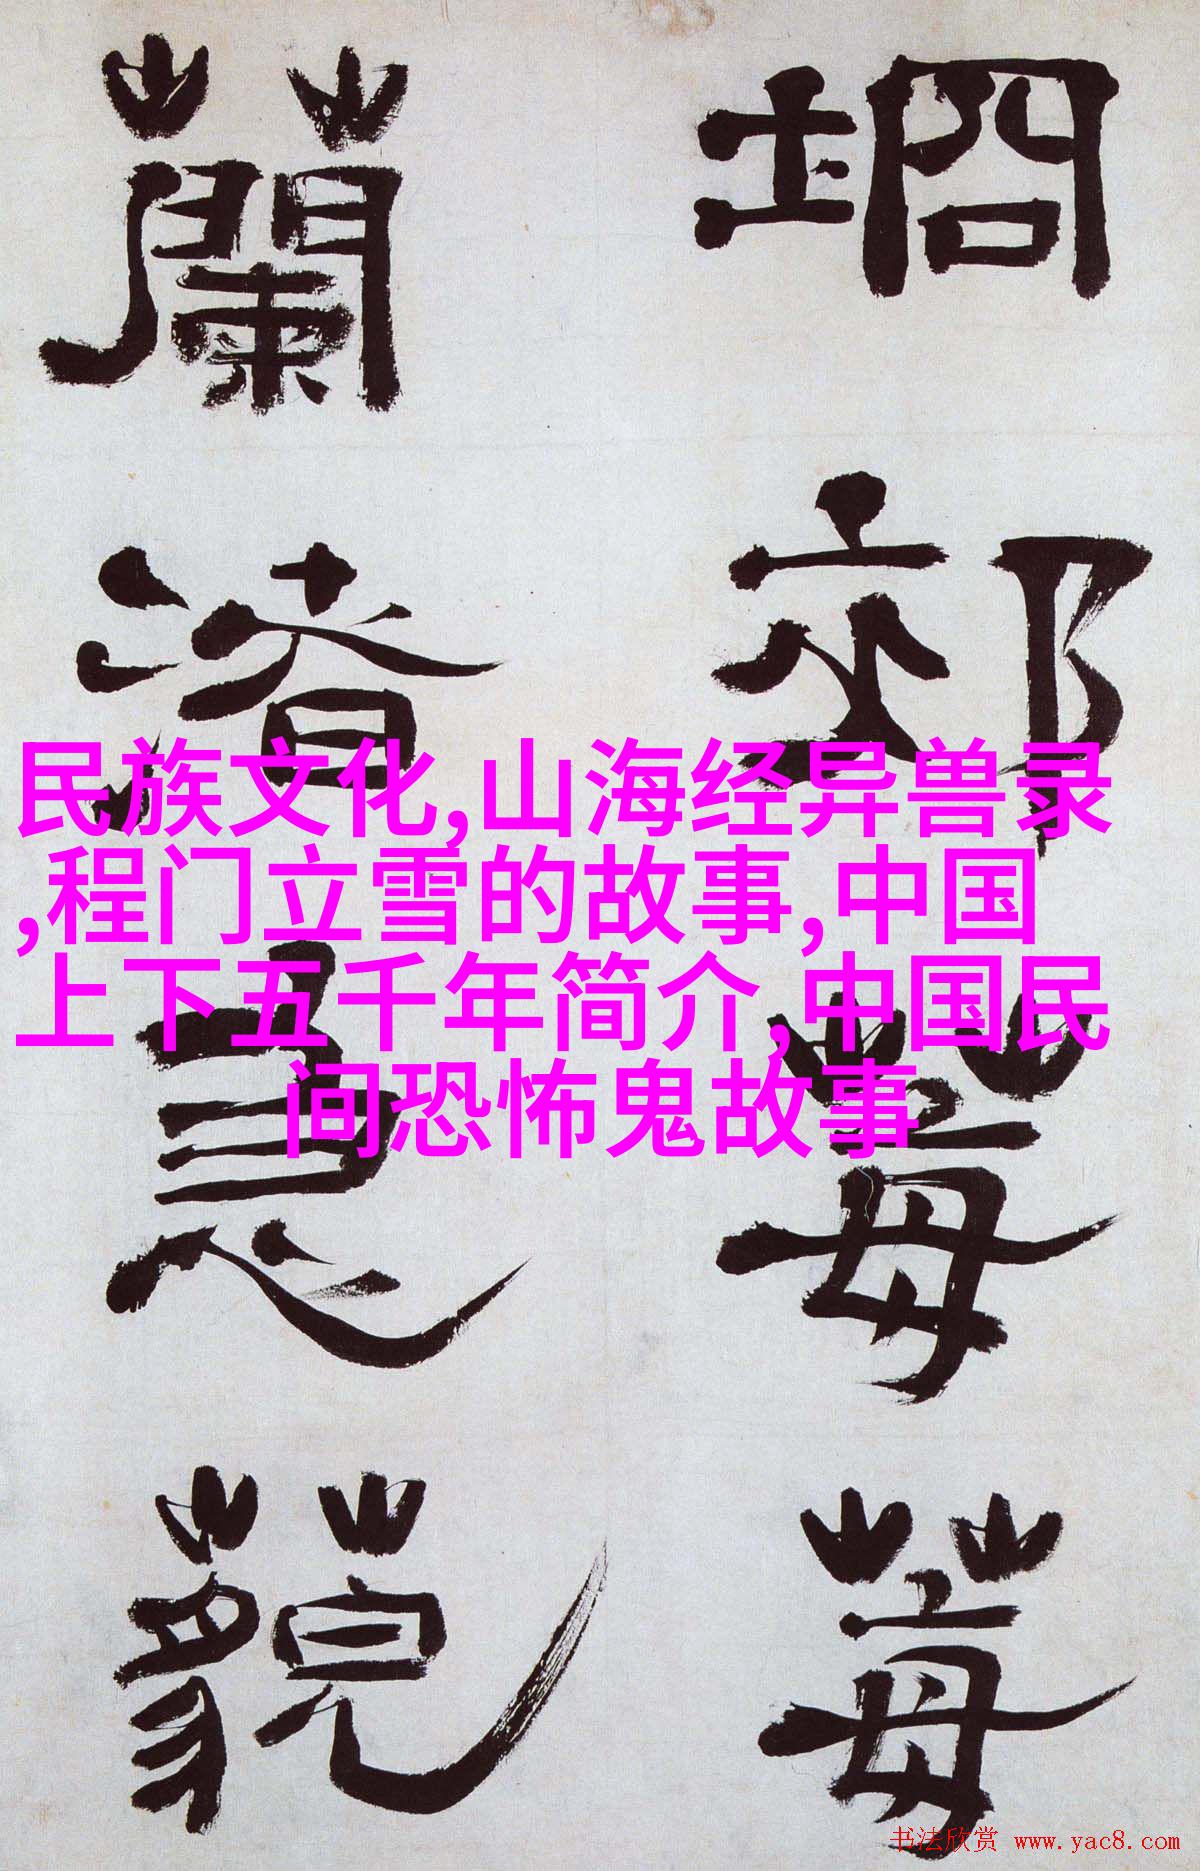 坰郊莓莓
蘭渚急藐
民族文化,山海经异兽录
,程门立雪的故事,中国
上下五千年简介,中国民
间恐怖鬼故事
书法欣赏 www.yac8.com